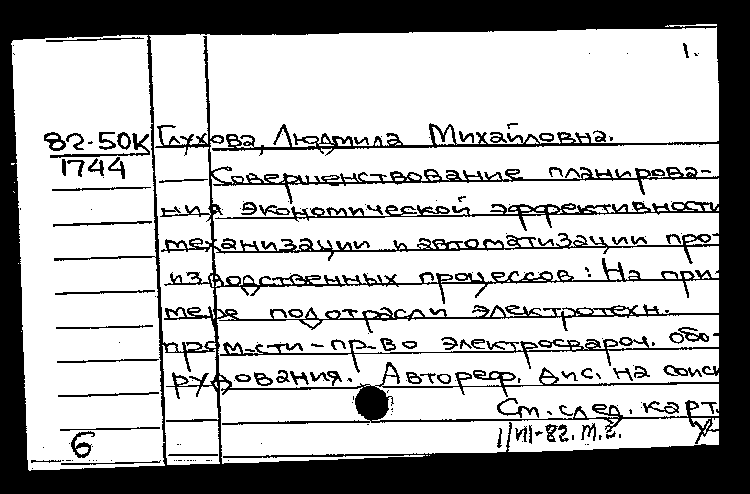 1.
82-50К Глухова, Людмила Михайловна.
1744
Совершенствование планирова-
ния экономической эффективности
механизации и автоматизации про-
изводственных процессов: На при-
мере подотрасли электротехн.
пром-сти - пр-во электросвароч. обо-
рудования. Автореф. дис. на соиск
См. след. карт.
6
1/VII-82. М.З.